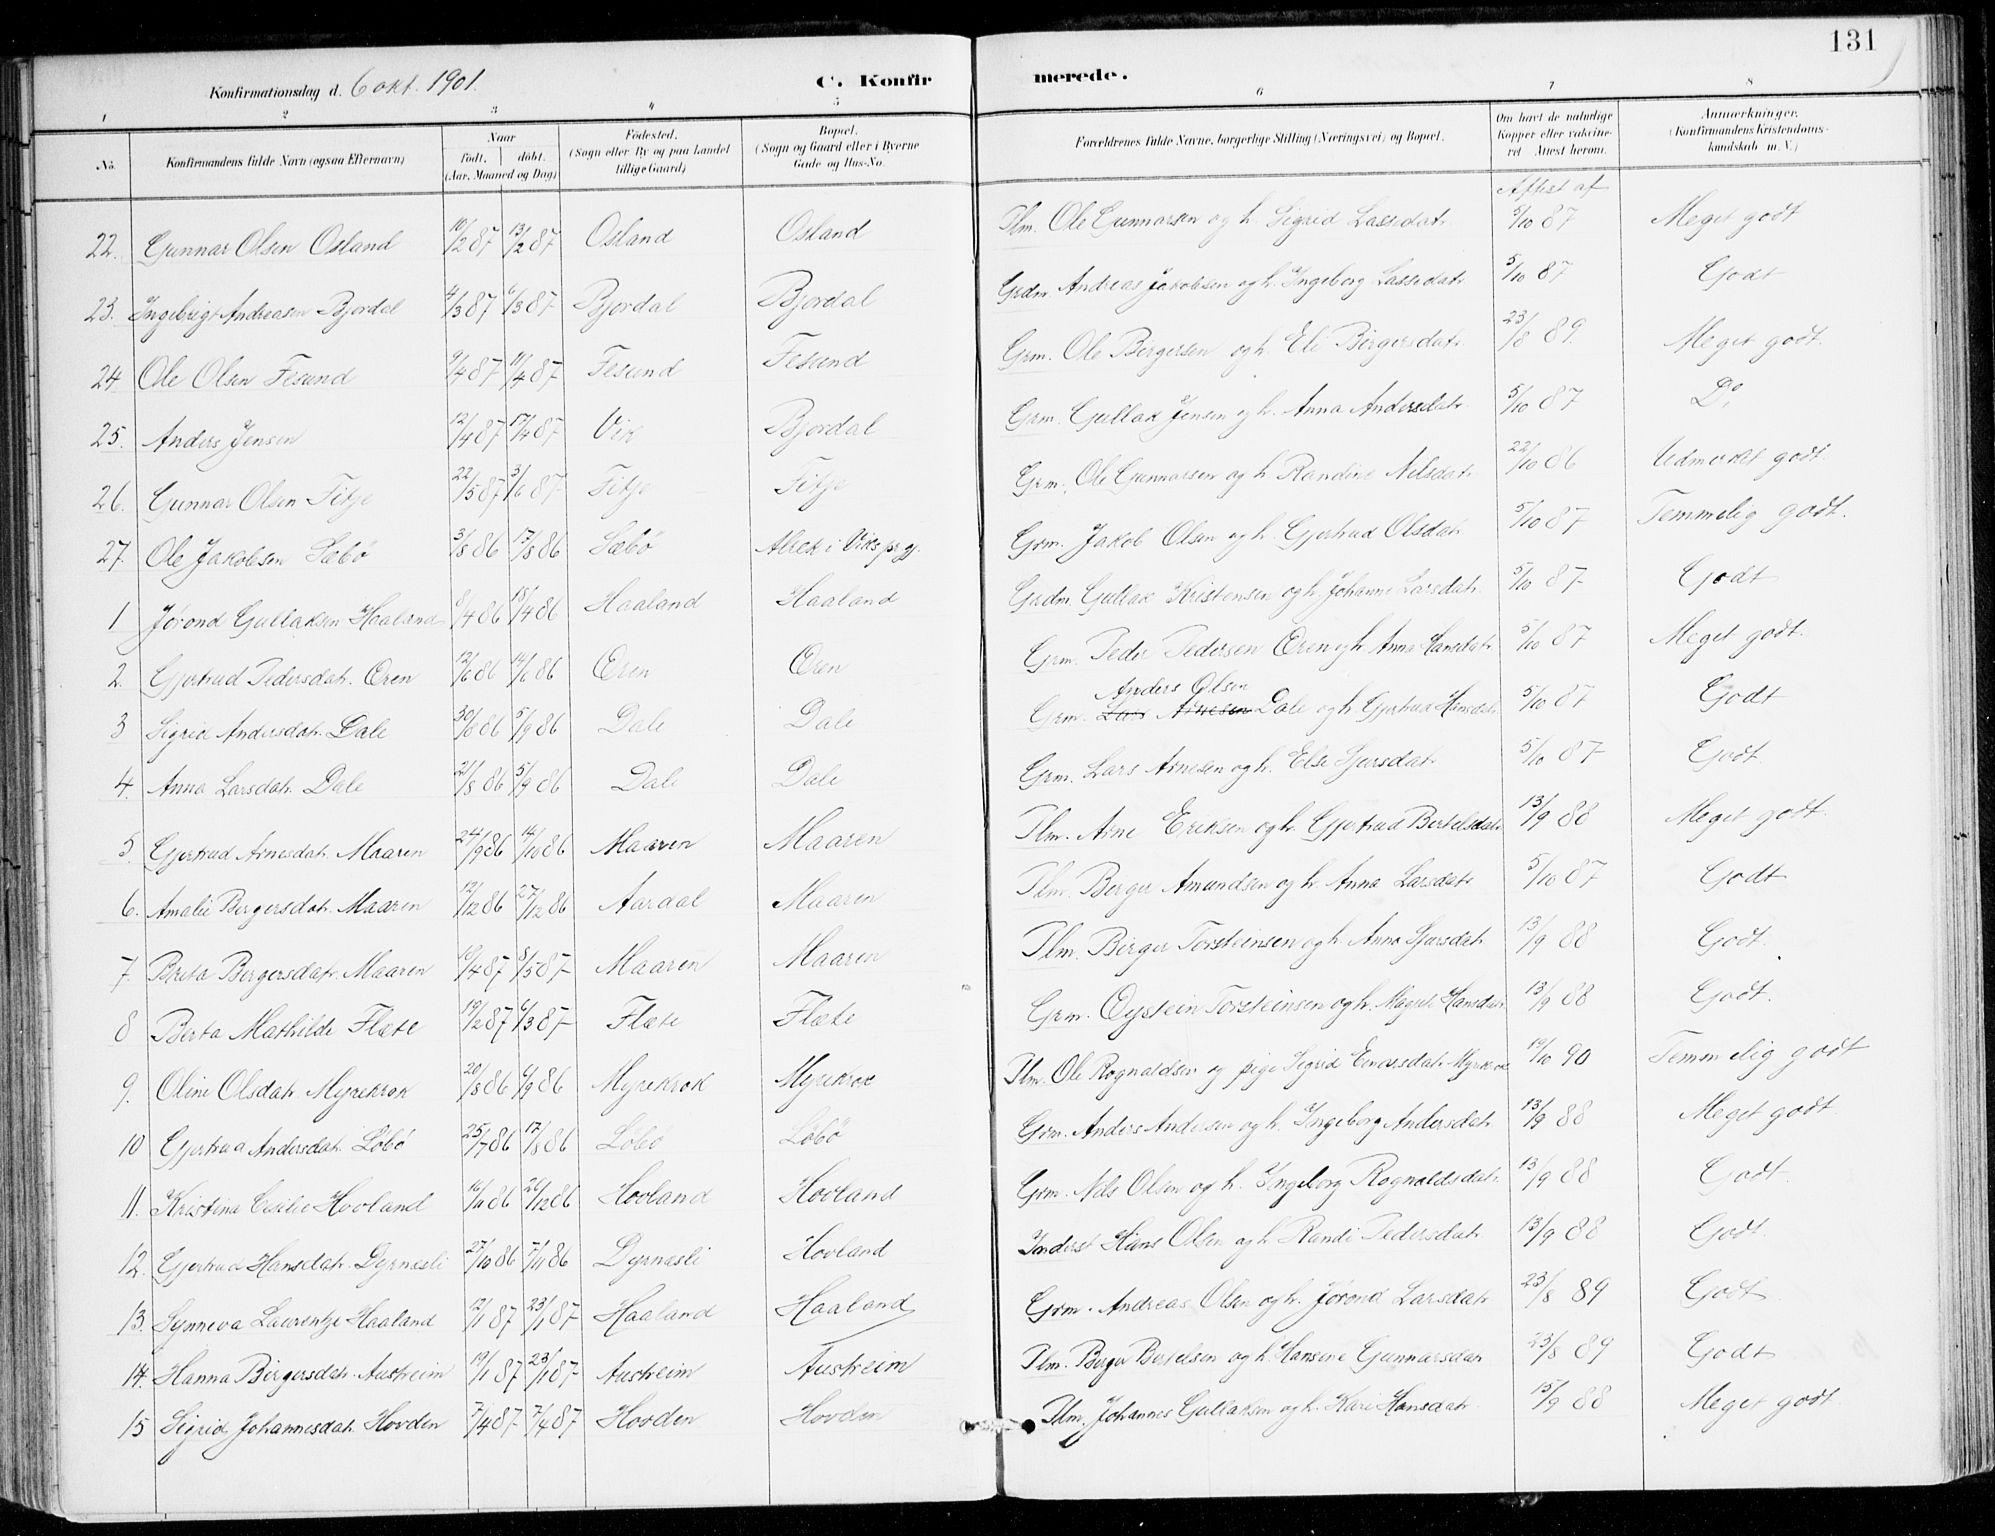 131
Konfirmationsdag d. 6 okt. 1901.
C. Konfir merede.
1 2 3 4 5 6 7 8
No. Konfirmandens fulde Navn (ogsaa Efternavn) Naar født, døbt. (Aar, Maaned og Dag) Fødested. (Sogn eller By og paa Landet tillige Gaard) Bopæl. (Sogn og Gaard eller i Byerne Gade og Hus-No. Forældrenes fulde Navne, borgerlige Stilling (Næringsvei) og Bopæl. Om havt de naturlige Kopper eller vaksineret. Attest herom. Anmærkninger. (Konfirmandens Kristendomskundskab m. V.)
Attest af
22. Gunnar Olsen Osland 10/2 87 13/2 87 Osland Osland Plm. Ole Gunnarsen og h. Sigrid Lassedatr. 5/10 87 Meget godt
23. Ingebrigt Andreasen Bjordal 4/3 87 6/3 87 Bjordal Bjordal Grdm. Andreas Jakobsen og h. Ingeborg Lassedatr. 5/10 87 Godt
24 Ole Olsen Fesund 9/4 87 11/4 87 Fesund Fesund Grm. Ole Bergersen og h. Eli Børgersdatr. 23/8 89. Meget godt.
25. Anders Jensen 12/4 87 17/4 87 Vik Bjordal Grm. Gullak Jensen og h. Anna Andersdatr. 5/10 87 Do.
26. Gunnar Olsen Fitje 22/5 87 3/6 87 Fitje Fitje Grm. Ole Gunnarsen og h. Randine Nilsdatr. 22/10 86 Udmerket godt.
27. Ole Jakobsen Sæbø 3/8 86 17/8 86 Sæbø Alrek i Viks prgj. Grm. Jakob Olsen og h. Gjertrud Olsdatr. 5/10 87 Temmelig godt.
1 Jørond Gullaksen Haaland 8/4 86 18/4 86 Haaland Haaland Grdm. Gullak Kristensen og h. Johanne Larsdatr. 5/10 87 Godt
2. Gjertrud Pedersdatr. Øren 12/6 86 14/6 86 Øren Øren Grm. Peder Pedersen Øren og h. Anna Hansdatr. 5/10 87 Meget godt.
Anders Olsen
3 Sigrid Andersdatr. Dale 30/6 86 5/9 86 Dale Dale Grm. Lars Arnesen Dale og h. Gjertrud Hansdatr. 5/10 87 Godt
4. Anna Larsdatr. Dale 21/8 86 5/9 86 Dale Dale Grm. Lars Arnesen og h. Else Sjursdatr. 5/10 87 Godt.
5. Gjertrud Arnesdatr. Maaren 24/9 86 14/10 86 Maaren Maaren Plm. Arne Eriksen og h. Gjertrud Bertelsdatr. 13/9 88 Meget godt
6. Amalie Bergersdatr. Maaren 12/12 86 27/12 86 Aardal Maaren Plm. Berger Amundsen og h. Anna Larsdatr. 5/10 87 Godt
7. Brita Bergersdatr. Maaren 10/4 87 8/5 87 Maaren Maaren Plm. Birger Torsteinsen og h. Anna Sjursdatr. 13/9 88 Godt.
8 Berta Mathilde Flæte 19/2 87 6/3 87 Flæte Flæte Grm. Øystein Torsteinsen og h. Magrete Hansdatr. 13/9 88 Godt.
9. Oline Olsdatr. Myrekrok 20/8 86 6/9 86 Myrekrok Myrekrok Plm. Ole Rognaldsen og pige Sigrid Einarsdatr. Myrkrok 14/10 90 Temmelig godt
10 Gjertrud Andersdatr. Løbø 25/7 86 17/8 86 Løbø Løbø Grm. Anders Andersen og h. Ingeborg Andersdatr. 13/9 88 Meget godt.
11. Kristina Cicilie Hovland 16/11 86 26/12 86 Hovland Hovland Grm. Nils Olsen og h. Ingeborg Rognaldsdatr. 13/9 88 Godt.
12. Gjertrud Hansdatr. Dyrnesli 27/10 86 7/11 86 Dyrnesli Hovland Inderst Hans Olsen og h. Randi Pedersdatr. 13/9 88 Godt.
13. Synneva Laurentze Haaland 12/1 87 23/1 87 Haaland Haaland Grm. Andreas Olsen og h. Jørond Larsdatr. 23/8 89 Godt
14. Hanna Birgersdatr. Austreim 19/1 87 23/1 87 Austreim Austreim Plm. Berger Bertelsen og h. Hansine Gunnarsdatr. 23/8 89 Godt
15 Sigrid Johannesdatr. Hovden 7/4 87 7/4 87 Hovden Hovden Plm. Johannes Gullaksen og h. Kari Hansdatr. 15/9 88 Meget godt.